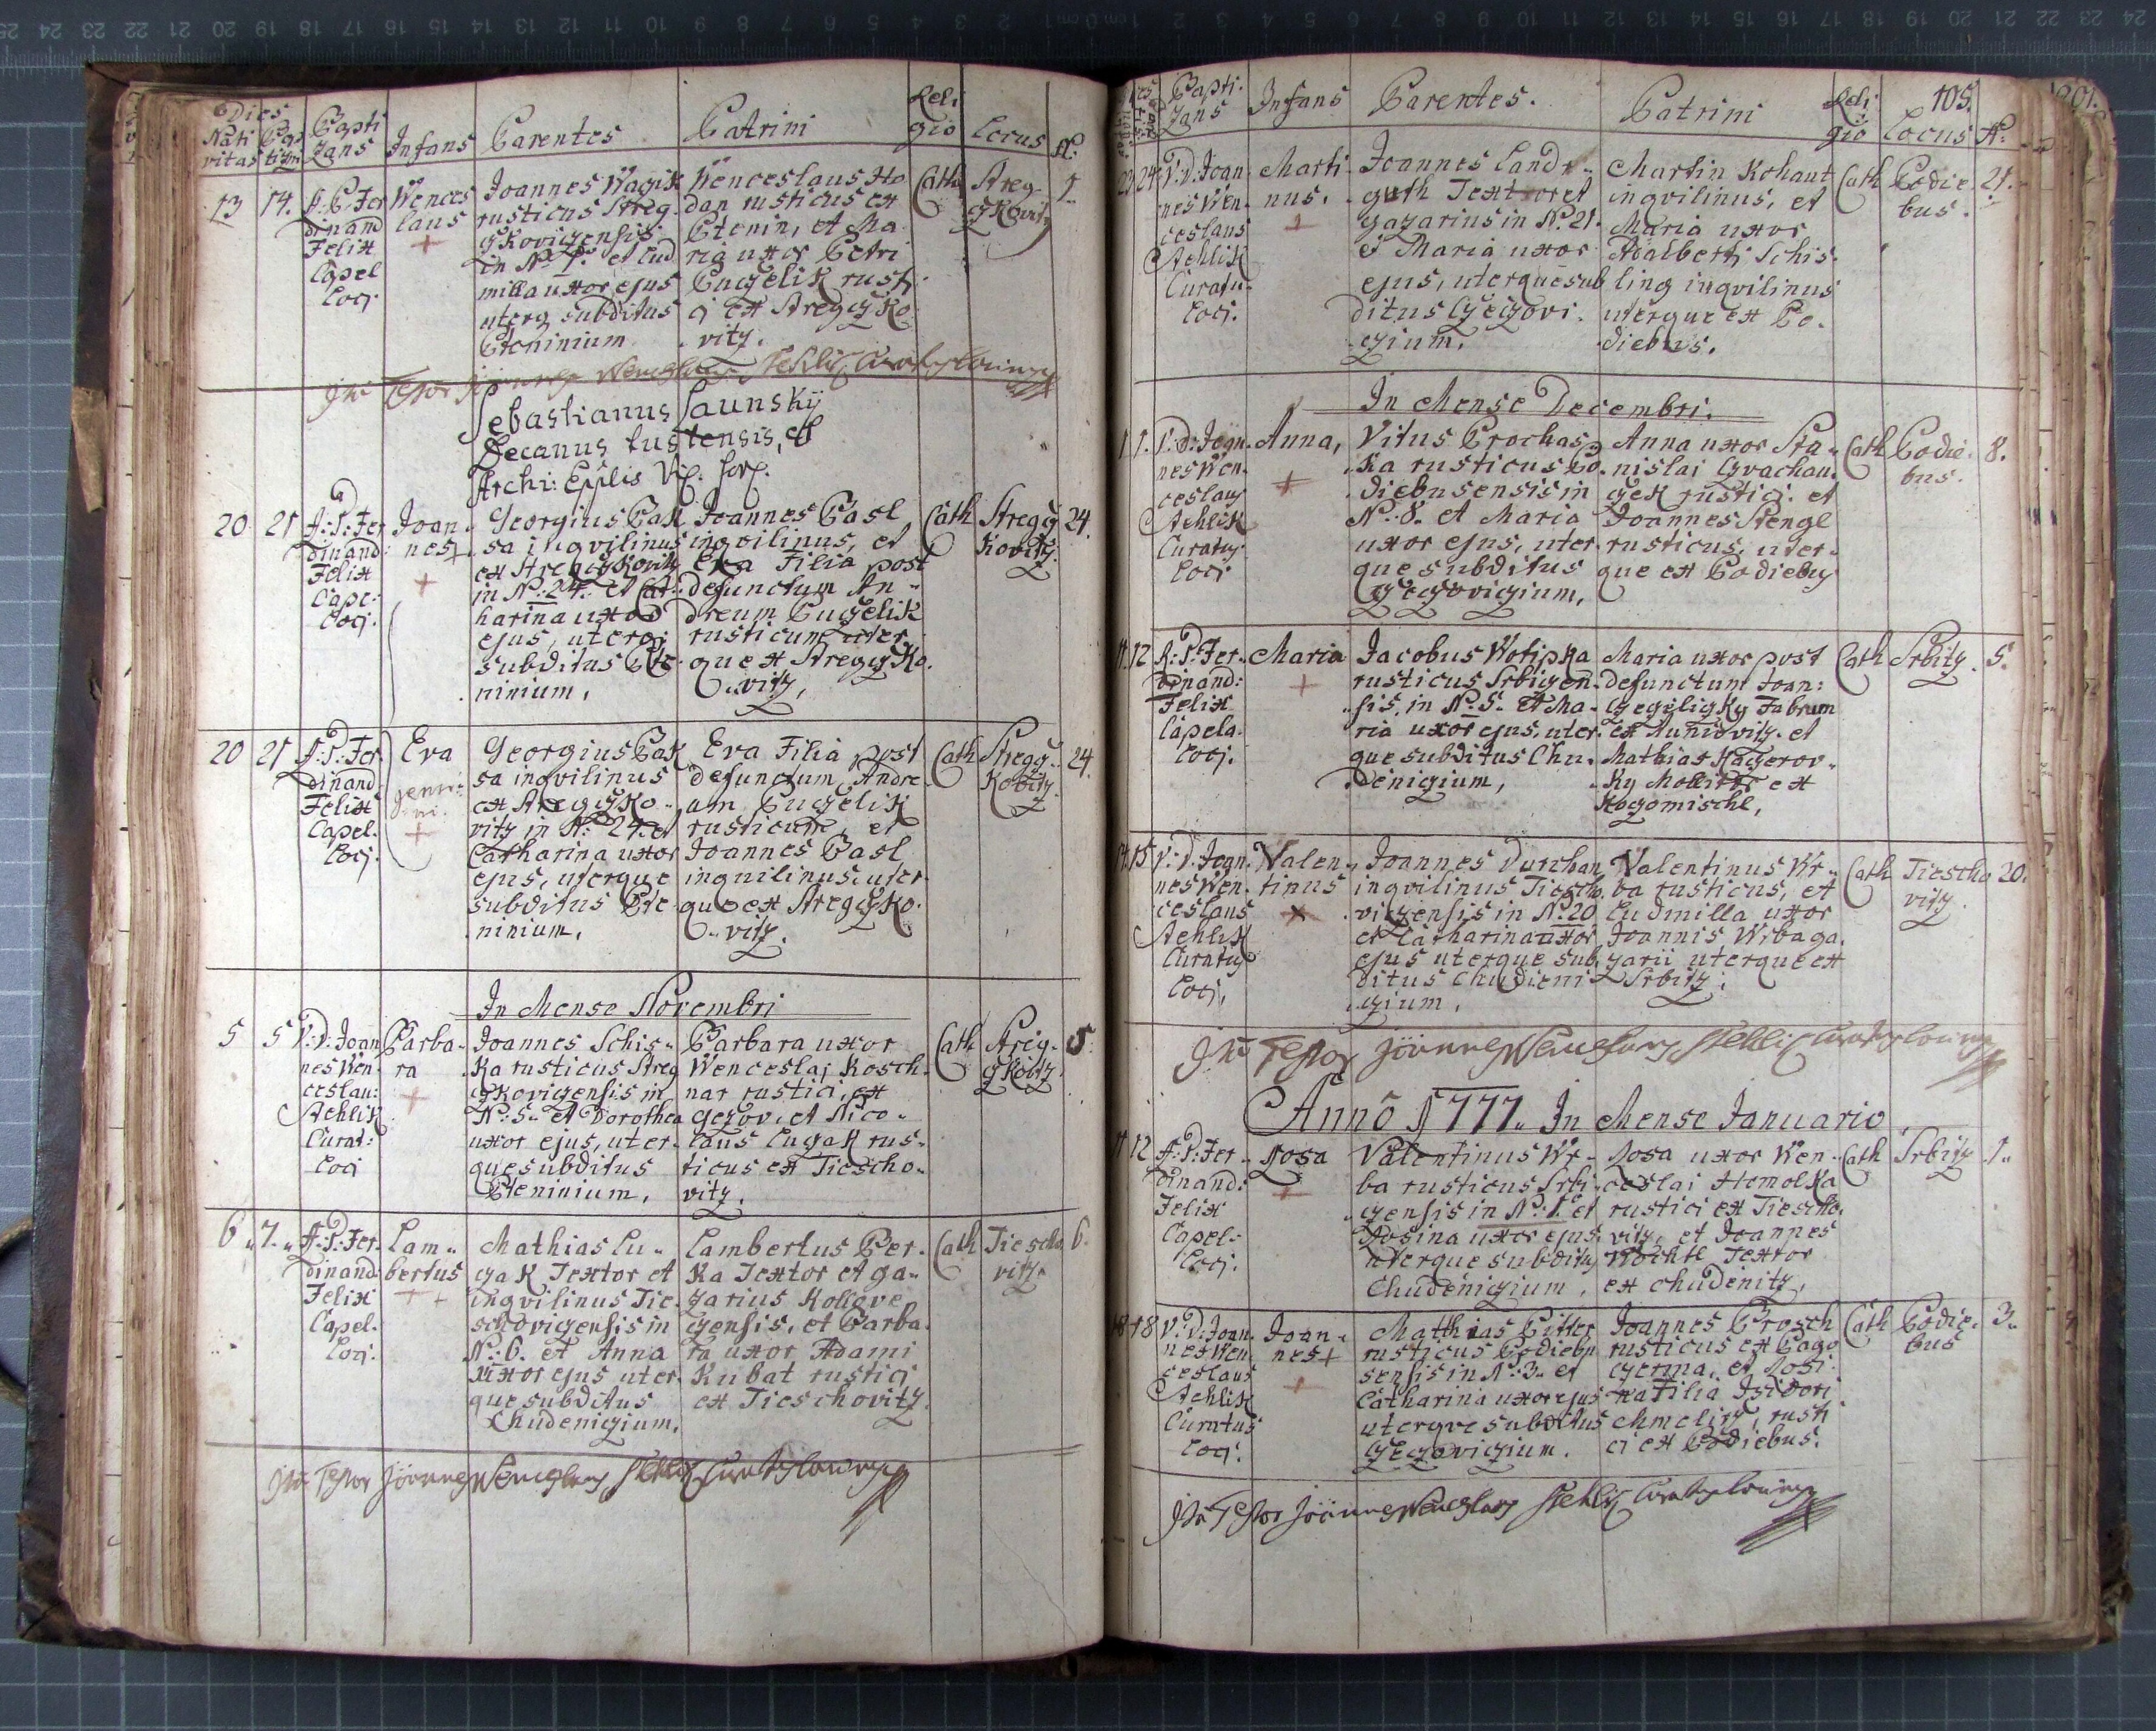 Dies
Nati Bap
vitas tizm
Bapti
zans
Infans
Parentes
Patrini
Reli
gio
Locus
N:
13
14.
Wences
laus
+
Felix
Capel
Loci.
Joannes Wazik
rusticus Streg-
czkovizensis
in No 1. et Lud
milla uxor ejus
uterq subditus
Pteninium
Wenceslaus Ho
dan rusticus ex
Ptenin, et Ma
ria uxor Petri
Pugelik rusti
ci ex Stregczko
vitz.
Cath
Streg
czkovitz
1.
Sebastianus Launsky
Decanus tustensis, et
20
21
R:P:Fer
dinand:
Felix
Cape:
Loci.
Joan-
nes+
+
Georgius Pak
sa inqvilinus
ex Stregczkovitz
in No: 24. et Cat-
harina uxor
ejus, uterq;
subditus Pte-
ninium,
Joannes Pasl
inqvilinus, et
Eva Filia post
defunctum An-
dream Pugelik
rusticum uter
que ex Stregczko.
vitz,
Cath
Streggz
kovitz.
24.
20
21
R:P:Fer.
dinand
Felix
Capel.
Loci.
Eva
gemi-
ni.
+
Georgius Pak
sa inqvilinus
ex Stregczko-
vitz in N: 24. et
Catharina uxor
ejus, uterque
subditus Pte-
ninium.
Eva Filia post
defunctum Andre-
am Pugelik
rusticum, et
Joannes Pasl
inquilinus, uter-
que ex Stregczko-
vitz.
Cath
Stregg-
kovitz.
24.
In Mense Novembri
5
5
V:D:Joan
nes Wen-
ceslau:
Stehlik
Curat:
Loci
Barba-
ra
+
Joannes Schis-
ka rusticus Streg
czkovizensis in
N:5. et Dorothea
uxor ejus, uter-
que subditus
Pteninium,
Barbara uxor
Wenceslai Kosch-
nar rustici, ex
gezov, et Nico-
laus Lugak rus-
ticus ex Tiescho-
vitz.
Cath
Strig-
czkovitz
5.
6
7.
R:P:Fer.
dinand
Felix
Capel.
Loci.
Lam-
bertus
+
Mathias Lu-
gak Textor et
inqvilinus Tie-
schovizensis in
N: 6. et Anna
uxor ejus uter-
que subditus
Chudenizium.
Lambertus Ber-
ka Textor et ga-
zarius Kollove
zensis, et Barba-
ra uxor Adami
Kubat rustici
ex Tieschovitz.
Cath
Tiescho
vitz.
6.
Ita Testor Joannes Wenceslaus Stehlik Curatus Loci
Bapti-
zans
Infans
Parentes.
Patrini
Reli
gio
105.
Locus
N:
23
24
V:D:Joan
nes Wen-
ceslaus
Stehlik
Curatu-
Loci.
Marti-
nus.
+
Joannes Land-
guth Textor et
gazarius in No. 21.
et Maria uxor
ejus, uterque sub
ditus Gezovi-
czium,
Martin Kohaut
inqvilinus, et
Maria uxor
Adalberti Schis-
ling inqvilinus
uterque ex Po-
diebus.
Cath
Podie
bus.
21.
In Mense Decembri.
1
1.
V:D:Joan-
nes Wen-
ceslaus
Stehlik
Curatus
Loci
Anna,
+
Vitus Prochas-
ka rusticus Po-
diebusensis in
No: 8. et Maria
uxor ejus, uter-
que subditus
Gezovizium,
Anna uxor Sta-
nislai
rustici et
Joannes Stengl
rusticus, uter-
que ex Podiebus
Cath
Podie-
bus.
8.
11.
12
R:P:Fer-
dinand:
Felix
Capela-
Loci.
Maria
+
Jacobus Wotipka
rusticus Srbizen-
sis, in N: 5. et Ma-
ria uxor ejus, uter-
que subditus Chu-
denizium,
Maria uxor post
defunctum Joan:
Fabrum
et
Mathias Kagerov-
ky Molitor ex
Cath
Srbitz.
5.
14.
15
V:D:Joan-
nes Wen-
ceslaus
Stehlik
Curatus
Loci,
Valen-
tinus
+
Joannes Duchan
inqvilinus Tiescho
vizensis in No. 20
et Catharina uxor
ejus uterque sub
ditus Chudieni
zium.
Valentinus Wr-
ba rusticus, et
Ludmilla uxor
Joannis Wrba ga-
zarii uterque ex
Srbitz;
Cath
Tiescho
vitz.
20.
Ita Testor Joannes Wenceslaus Stehlik Curatus Loci
Anno 1777. In Mense Januario
11
12
R:P:Fer-
dinand:
Felix
Capel:
Loci.
Rosa
+
Valentinus Wr-
ba rusticus Srbi-
zensis in N: 1. et
Rosina uxor ejus
uterque subditus
Chudenizium,
Rosa uxor Wen-
ceslai Homolka
rustici ex Tiescho
vitz, et Joannes
Wochtl Textor
ex Chudenitz,
Cath
Srbitz
1.
18
18
V:D:Joan-
nes Wen-
ceslaus
Stehlik
Curatus
Loci.
Joan-
nes+
+
Matthias Bitter
rusticus Podiebu
sensis in N: 3. et
Catharina uxor ejus
uterque subditus
Gezovizium.
Joannes Brosch
rusticus ex
et Rosi-
na Filia Isidori
Chmeliz, rusti
ci ex Podiebus.
Cath
Podie-
bus
3.
Ita Testor Joannes Wenceslaus Stehlik Curatus Loci